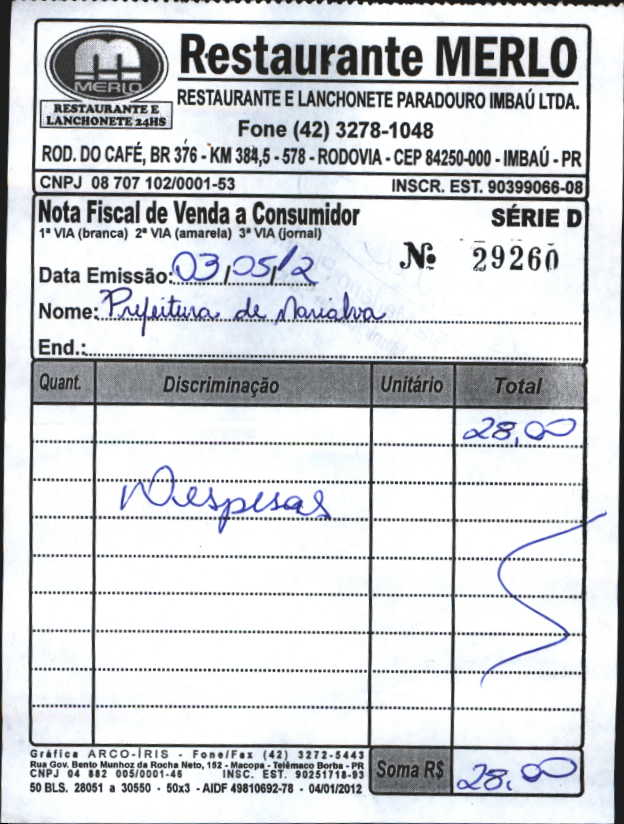 MERLO
RESTAURANTE E
LANCHONETE 24HS
Restaurante MERLO
RESTAURANTE E LANCHONETE PARADOURO IMBAÚ LTDA.
Fone (42) 3278-1048
ROD. DO CAFÉ, BR 376 - KM 384,5 - 578 - RODOVIA - CEP 84250-000 - IMBAÚ - PR
CNPJ 08 707 102/0001-53 INSCR. EST. 90399066-08
Nota Fiscal de Venda a Consumidor SÉRIE D
1ª VIA (branca) 2ª VIA (amarela) 3ª VIA (jornal)
Nº 29260
Data Emissão: 03/05/12
Nome: Prefeitura de Marialva
End.:
Quant. Discriminação Unitário Total
28,00
Despesas
Gráfica ARCO-ÍRIS - Fone/Fax (42) 3272-5443
Rua Gov. Bento Munhoz da Rocha Neto, 152 - Macopa - Telêmaco Borba - PR
CNPJ 04 882 005/0001-46 INSC. EST. 90251718-93
50 BLS. 28051 a 30550 - 50x3 - AIDF 49810692-78 - 04/01/2012
Soma R$ 28,00